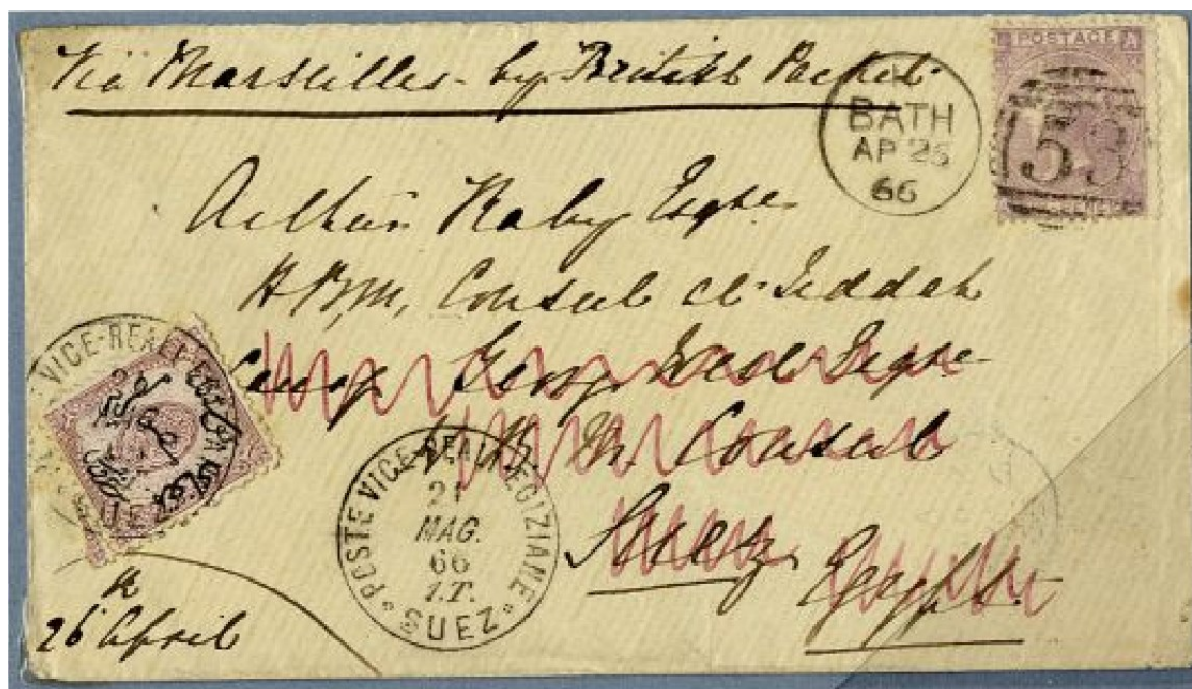 Via Marseilles - by British Packet
POSTAGE
BATH
AP 25
66
53
Arthur Raby Esqre
H.B.M. Consul at Jeddah
George West Esqre
H.B.M. Consul
Suez
Egypt
VICE-REALI
SUEZ
POSTE VICE-REALI EGIZIANE
21
MAG.
66
SUEZ
26 April